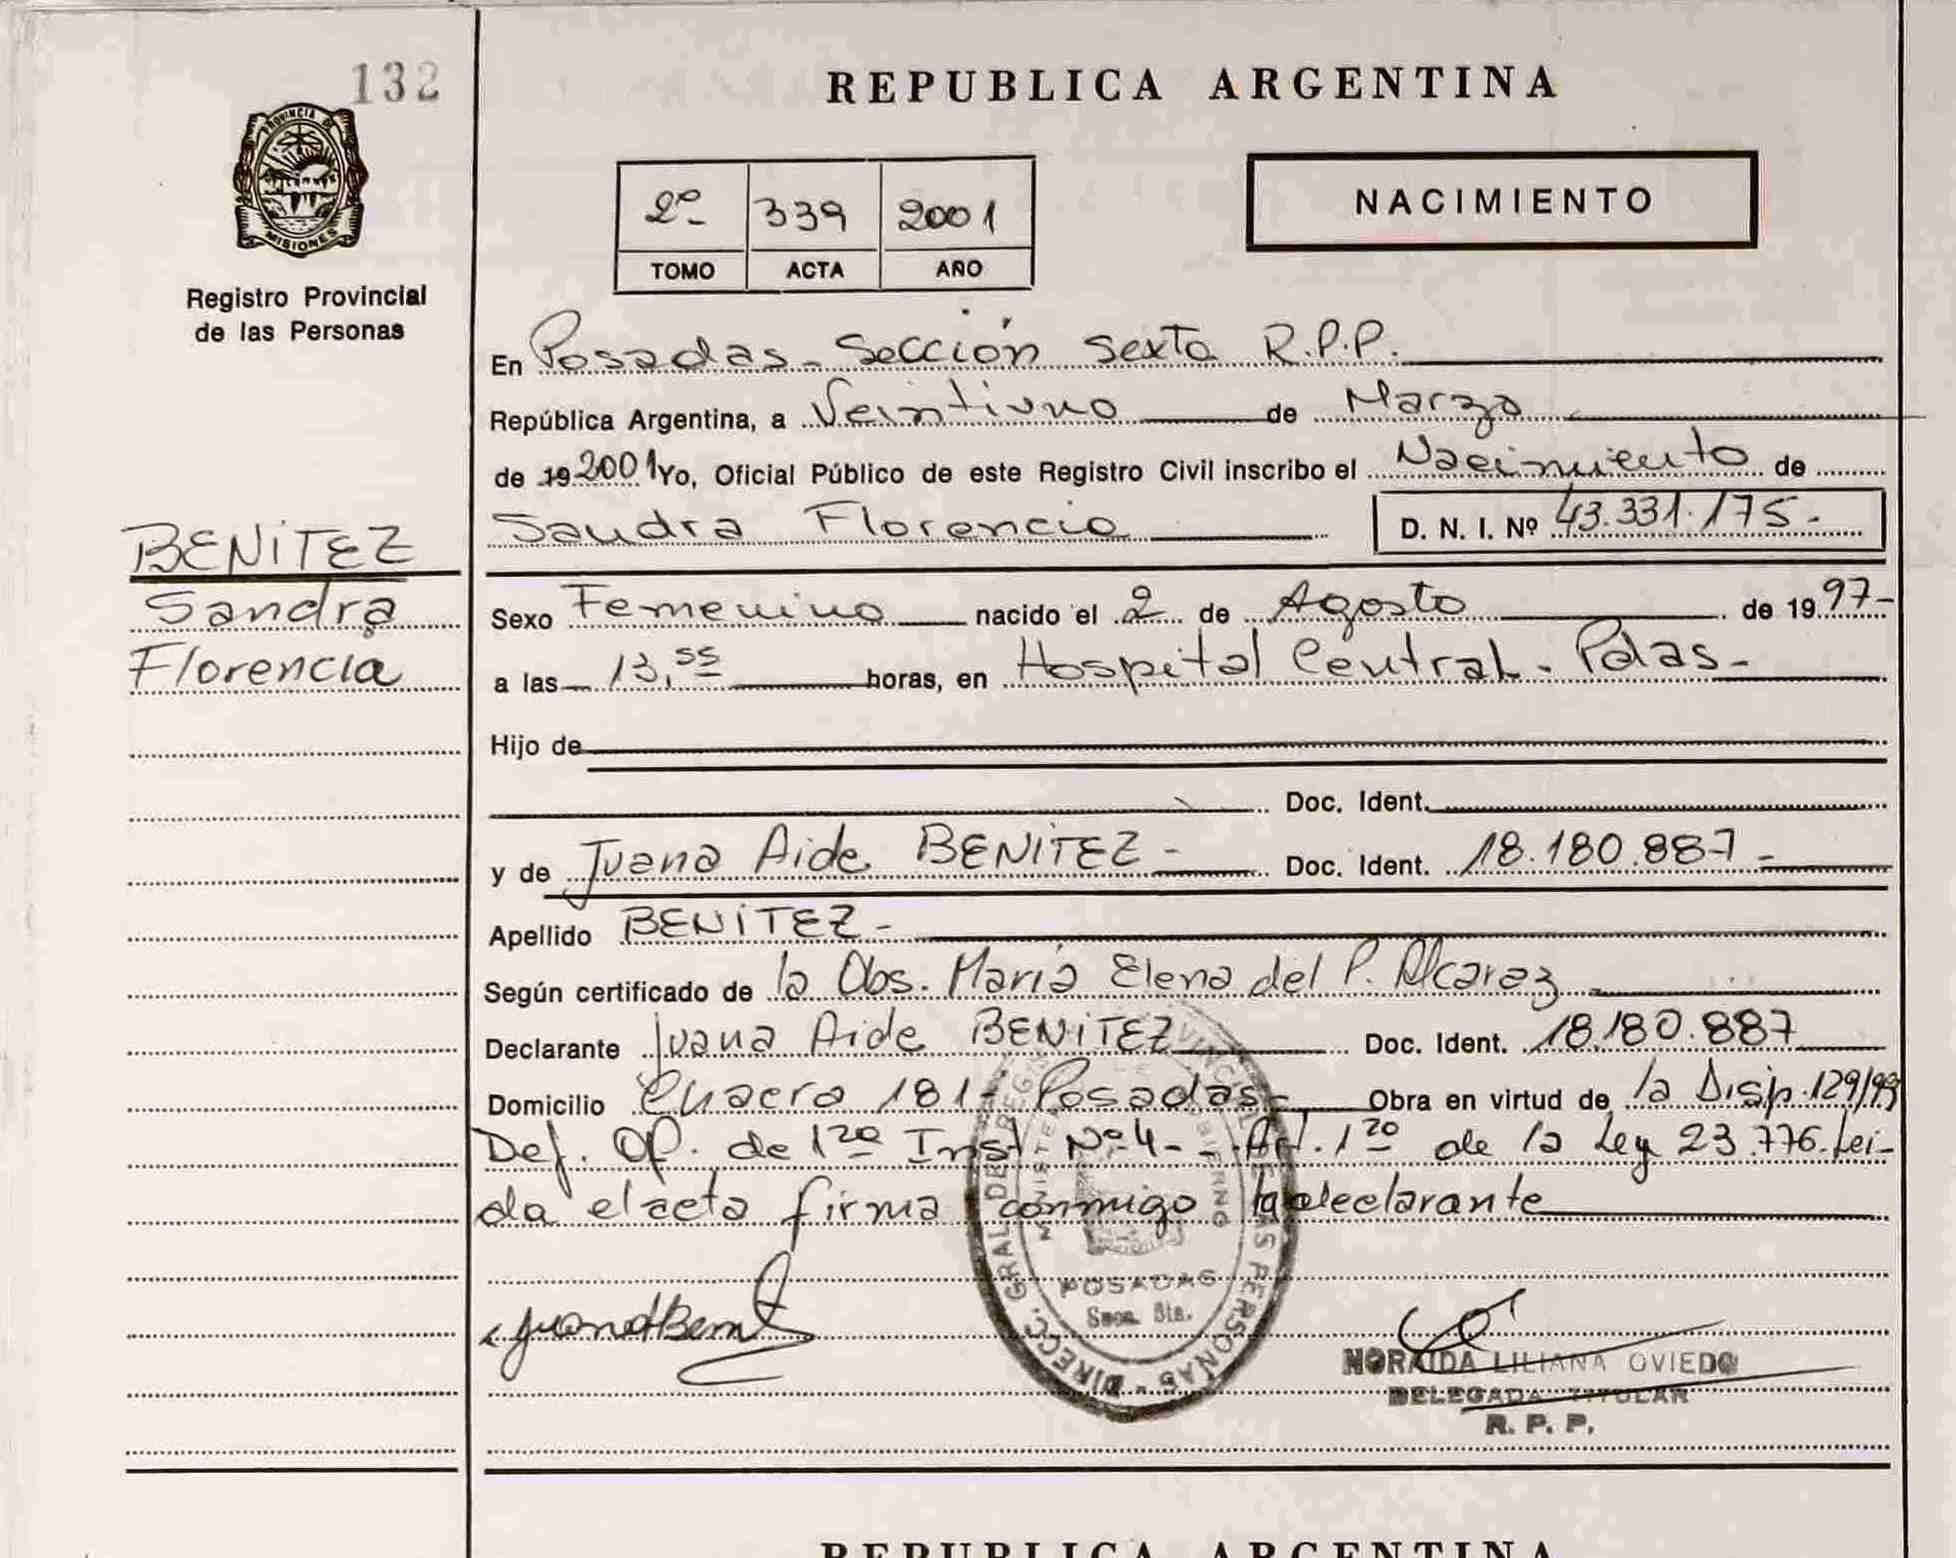 132
REPUBLICA ARGENTINA
PROVINCIA DE
MISIONES
Registro Provincial
de las Personas
2º 339 2001
TOMO ACTA AÑO
NACIMIENTO
En Posadas - Sección Sexta R.P.P.
República Argentina, a Veintiuno de Marzo
de 19 2001 Yo, Oficial Público de este Registro Civil inscribo el Nacimiento de
Sandra Florencia D. N. I. Nº 43.331.175.-
BENITEZ
Sandra
Florencia
Sexo Femenino nacido el 2 de Agosto de 1997-
a las 13,55 horas, en Hospital Central - Pdas-
Hijo de
Doc. Ident.
y de Juana Aide BENITEZ - Doc. Ident. 18.180.887 -
Apellido BENITEZ -
Según certificado de la Obs. María Elena del P. Alcaraz
Declarante Juana Aide BENITEZ Doc. Ident. 18.180.887
Domicilio Chacra 181 - Posadas - Obra en virtud de la Disp. 129/99
Def. Of. de 1ra Inst. Nº 4 - Art. 1ro de la Ley 23.776. Lei-
da el acta firma conmigo la declarante
DIRECC. GRAL DE REG PROVINCIAL DE LAS PERSONAS -
MINISTE GOBIERNO
POSADAS
Secc. 6ta.
NORAIDA LILIANA OVIEDO
DELEGADA TITULAR
R. P. P.
REPUBLICA ARGENTINA